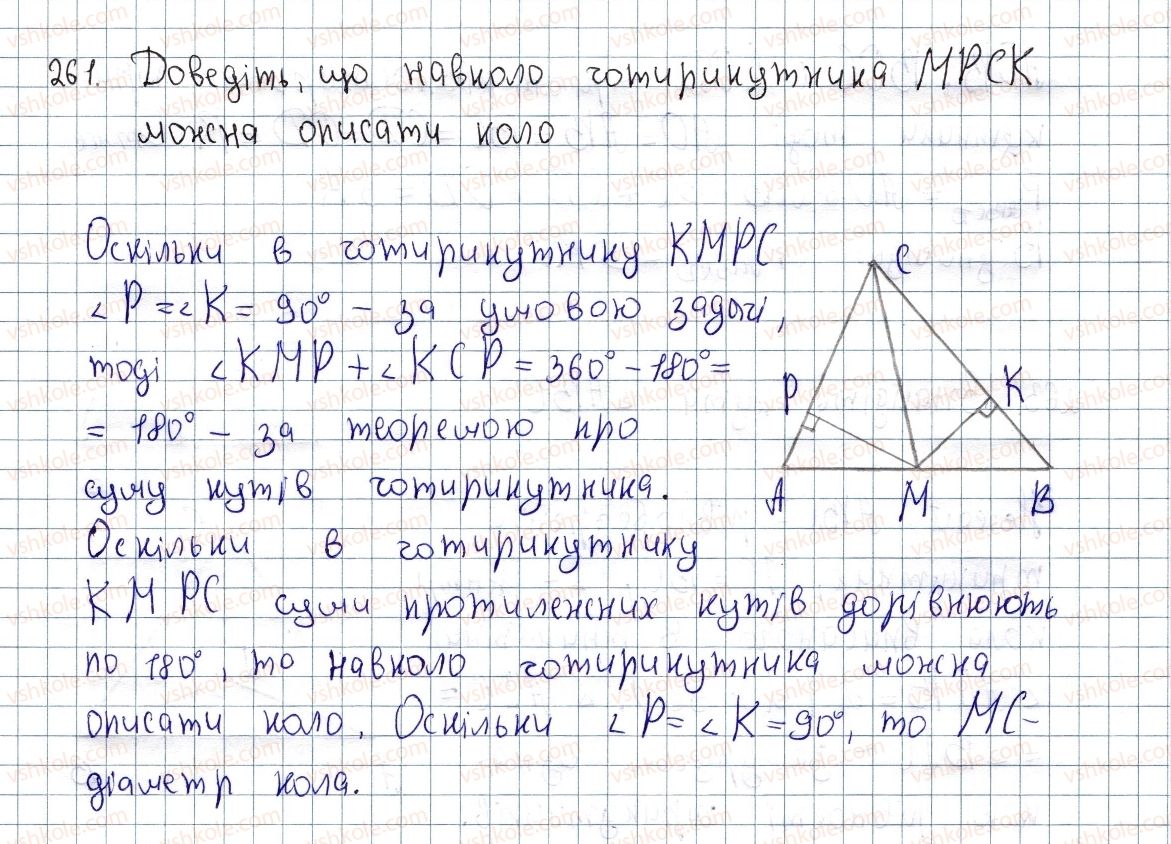 261. Доведіть, що навколо чотирикутника МРСК
можна описати коло
Оскільки в чотирикутнику КМРС
∠P = ∠K = 90° – за умовою задачі,
тоді ∠KMP + ∠KCP = 360° – 180° =
= 180° – за теоремою про
суму кутів чотирикутника.
Оскільки в чотирикутнику
КМРС суми протилежних кутів дорівнюють
по 180°, то навколо чотирикутника можна
описати коло. Оскільки ∠P = ∠K = 90°, то МС –
діаметр кола.
C
P
K
A M B